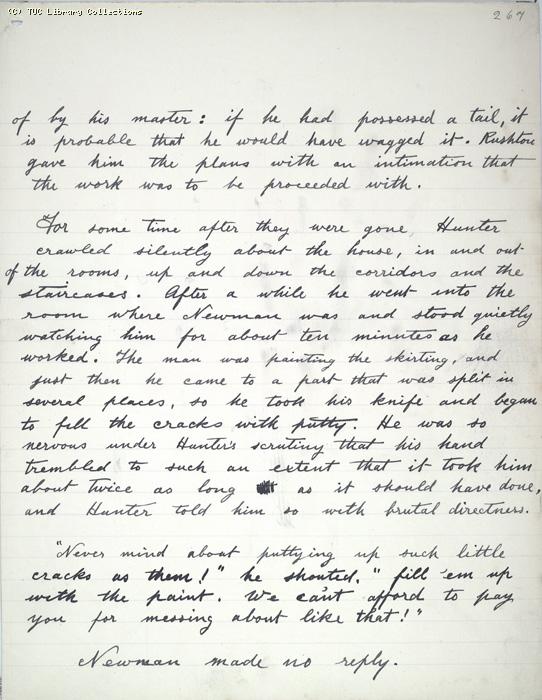 (C) TUC Library Collections
267
of by his master: if he had possessed a tail, it
is probable that he would have wagged it. Rushton
gave him the plans with an intimation that
the work was to be proceeded with.
For some time after they were gone, Hunter
crawled silently about the house, in and out
of the rooms, up and down the corridors and the
staircases. After a while he went into the
room where Newman was and stood quietly
watching him for about ten minutes as he
worked. The man was painting the skirting, and
just then he came to a part that was split in
several places, so he took his knife and began
to fill the cracks with putty. He was so
nervous under Hunter's scrutiny that his hand
trembled to such an extent that it took him
about twice as long as it should have done,
and Hunter told him so with brutal directness.
"Never mind about puttying up such little
cracks as them!" he shouted. "fill 'em up
with the paint. We can't afford to pay
you for messing about like that!"
Newman made no reply.